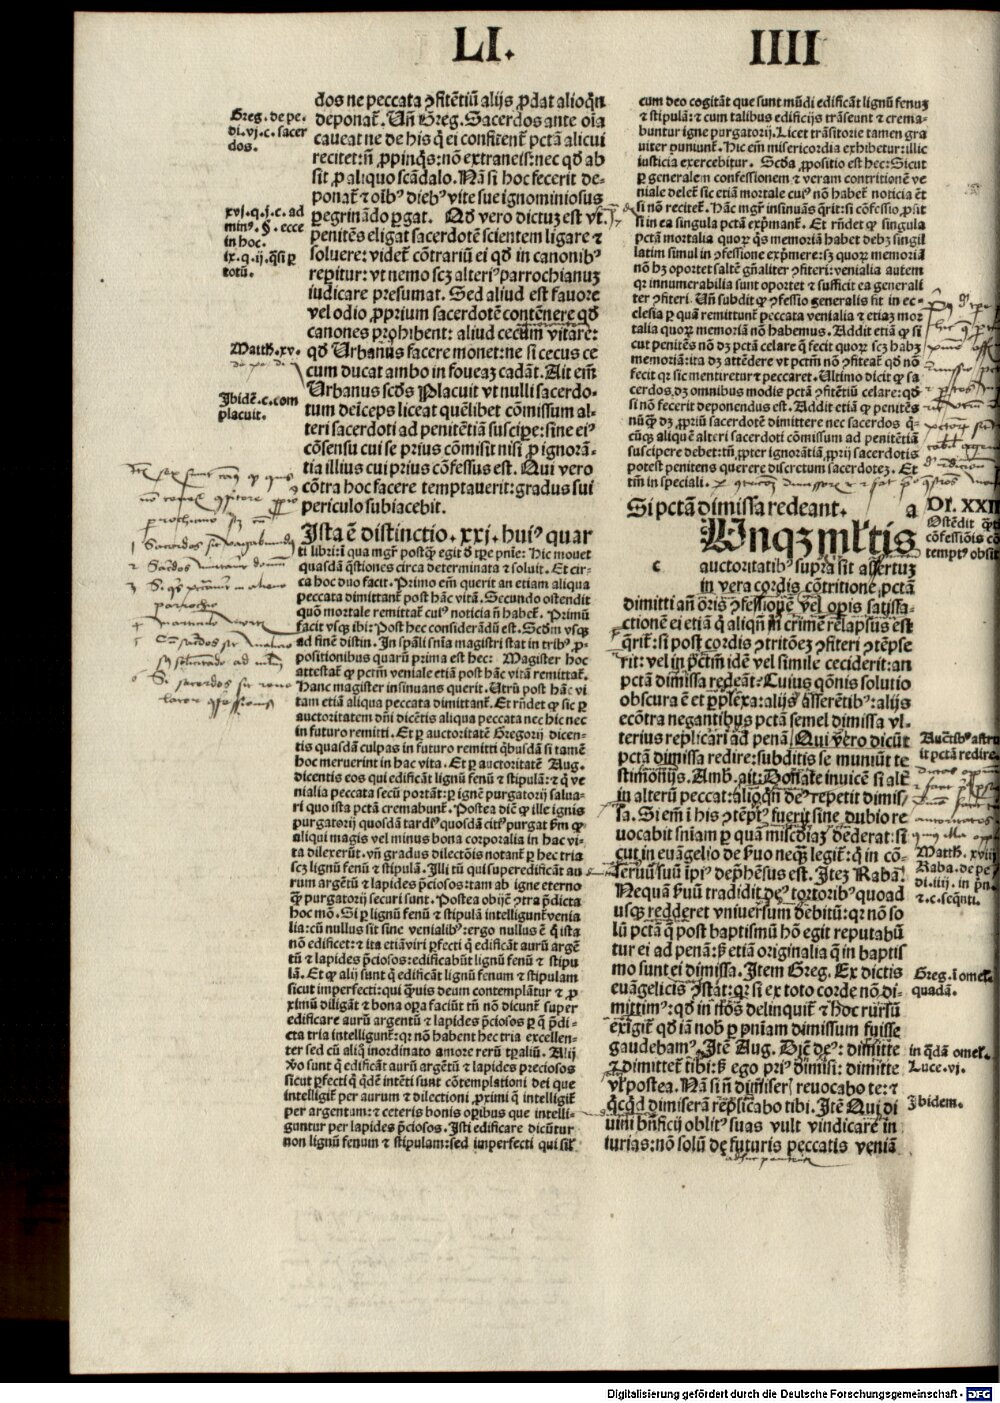 LI. IIII
dos ne peccata ꝯfitẽtiũ alijs ꝓdat alioqͥn
deponat᷑. Uñ Greg. Sacerdos ante oĩa
caueat ne de his q̃ ei confitent᷑ pctã alicui
recitet:ñ ꝓpinqͥs:nõ extraneis:nec qđ ab
sit ꝓ aliquo scãdalo. Nã si hoc fecerit de-
ponat᷑ ⁊ oĩbꝰ diebꝰ vite sue ignominiosus
ꝑegrinãdo ꝑgat. Qđ vero dictuꝫ est vt
penitẽs eligat sacerdotẽ scientem ligare ⁊
soluere: videt᷑ cõtrariũ ei qđ in canonibꝰ
reꝑitur: vt nemo scꝫ alteriꝰ parrochianuꝫ
iudicare presumat. Sed aliud est fauore
vel odio ꝓprium sacerdotẽ contẽnere qđ
canones prohibent: aliud cecum vitare:
qđ Urbanus facere monet:ne si cecus ce
cum ducat ambo in foueaꝫ cadãt. Ait em̃
Urbanus scđs Placuit vt nulli sacerdo-
tum deĩceps liceat quẽlibet cõmissum al-
teri sacerdoti ad penitẽtiã suscipe:sine eiꝰ
cõsensu cui se prius cõmisit nisi ꝓ ignorã-
tia illius cui prius cõfessus est. Qui vero
cõtra hoc facere temptauerit:gradus sui
periculo subiacebit.
Greg. de pe.
di.vj.c. sacer
dos.
xvj.q.j.c. ad
minꝰ. §. ecce
in hoc.
ix.q.ij.qͥsi ꝑ
totũ.
Matth.xv.
Ibidẽ.c.com
placuit.
Ista ẽ distinctio.xxj.huiꝰ quar
ti libri:ĩ qua mgr̃ postq̃ egit đ tꝑe pnĩe: hic mouet
quasdã q̃stiones circa determinata ⁊ soluit. Et cir-
ca hoc duo facit. Primo em̃ querit an etiam aliqua
peccata dimittant᷑ post hãc vitã. Secundo ostendit
quõ mortale remittat᷑ cuiꝰ noticia ñ habet᷑. Primũ
facit vsqꝫ ibi: Post hec considerãdũ est. Scđm vsqꝫ
ad finẽ distin. In spãli snĩa magistri stat in tribꝰ ꝓ-
positionibus quarũ prima est hec: Magister hoc
attestat᷑ ꝙ pctm̃ veniale etiã post hãc vitã remittat᷑.
Hanc magister insinuans querit. Utrũ post hãc vi
tam etiã aliqua peccata dimittant᷑. Et rñdet ꝙ sic ꝑ
auctoritatem dñi dicẽtis aliqua peccata nec hic nec
in futuro remitti. Et ꝑ auctoritatẽ Gregorij dicen-
tis quasdã culpas in futuro remitti qͥbusdã si tamẽ
hoc meruerint in hac vita. Et ꝑ auctoritatẽ Aug.
dicentis eos qui edificãt lignũ fenũ ⁊ stipulã: ⁊ q̃ ve
nialia peccata secũ portãt:ꝑ ignẽ purgatorij salua-
ri quo ista pctã cremabunt᷑. Postea dic̃ ꝙ ille ignis
purgatorij quosdã tardiꝰ quosdã citiꝰ purgat ẜm ꝙ
aliqui magis vel minus bona corporalia in hac vi-
ta dilexerũt. vñ gradus dilectõis notant᷑ ꝑ hec tria
scꝫ lignũ fenũ ⁊ stipulã. Illi tñ qui superedificãt au-
rum argẽtũ ⁊ lapides p̃ciosos:tam ab igne eterno
q̃ purgatorij securi sunt. Postea obijc̃ ꝯtra p̃dicta
hoc mõ. Si ꝑ lignũ fenũ ⁊ stipulã intelligunt᷑ venia
lia:cũ nullus sit sine venialibꝰ:ergo nullus ẽ q̃ ista
nõ edificet:⁊ ita etiã viri ꝑfecti q̃ edificãt aurũ argẽ
tũ ⁊ lapides p̃ciosos:edificabũt lignũ fenũ ⁊ stipu
lã. Et ꝙ alij sunt q̃ edificãt lignũ fenum ⁊ stipulam
sicut imperfecti:qui q̃uis deum contemplãtur ⁊ ꝓ
ximũ diligãt ⁊ bona oꝑa faciũt tñ nõ dicunt᷑ super
edificare aurũ argentũ ⁊ lapides p̃ciosos ꝑ q̃ p̃di-
cta tria intelligunt᷑:qꝛ nõ habent hec tria excellen-
ter sed cũ aliq̃ inordinato amore rerũ tꝑaliũ. Alij
ṽo sunt q̃ edificãt aurũ argẽtũ ⁊ lapides preciosos
sicut ꝑfecti q̃ qͥdẽ intẽti sunt cõtemplationi dei que
intelligit᷑ per aurum ⁊ dilectioni ꝓximi q̃ intelligit᷑
per argentum:⁊ ceteris bonis oꝑibus que intelli-
guntur per lapides p̃ciosos. Isti edificare dicũtur
non lignũ fenum ⁊ stipulam:sed imperfecti qui sil᷑
cum deo cogitãt que sunt mũdi edificãt lignũ fenuꝫ
⁊ stipulã: ⁊ cum talibus edificijs trãseunt ⁊ crema-
buntur igne purgatorij. Licet trãsitorie tamen gra
uiter puniunt᷑. Hic em̃ misericordia exhibetur:illic
iusticia exercebitur. Scđa ꝓpositio est hec: Sicut
ꝑ generalem confessionem ⁊ veram contritionẽ ve
niale delet᷑ sic etiã mortale cuiꝰ nõ habet᷑ noticia ẽt
si nõ recitet᷑. Hãc mgr̃ insinuãs q̃rit:si cõfessio ꝓsit
si in ea singula pctã exp̃mant᷑. Et rñdet ꝙ singula
pctã mortalia quoꝝ qͥs memoriã habet debꝫ singil
latim simul in ꝯfessione exp̃mere:sꝫ quoꝝ memoriã
nõ hꝫ oportet saltẽ gñaliter ꝯfiteri:venialia autem
qꝛ innumerabilia sunt oportet ⁊ sufficit ea generali
ter ꝯfiteri. Uñ subdit ꝙ ꝯfessio generalis fit in ec-
clesia ꝑ quã remittunt᷑ peccata venialia ⁊ etiaꝫ mor
talia quoꝝ memoriã nõ habemus. Addit etiã ꝙ si
cut penitẽs nõ dꝫ pctã celare q̃ fecit quoꝝ scꝫ habꝫ
memoriã:ita dꝫ attẽdere vt pctm̃ nõ ꝯfiteat᷑ qđ nõ
fecit qꝛ sic mentiretur ⁊ peccaret. Ultimo dicit ꝙ sa
cerdos dꝫ omnibus modis pctã ꝯfitẽtiũ celare:qđ
si nõ fecerit deponendus est. Addit etiã ꝙ penitẽs
nũq̃ dꝫ ꝓpriũ sacerdotẽ dimittere nec sacerdos q̃-
cũqꝫ aliquẽ alteri sacerdoti cõmissum ad penitẽtiã
suscipere debet:tñ ꝓpter ignorãtiã ꝓprij sacerdotis
potest penitens querere discretum sacerdoteꝫ. Et
tm̃ in speciali.
Si pctã dimissa redeant. a
Unqꝫ ml᷑tis
auctoritatibꝰ supra sit assertuꝫ
in vera cordis cõtritione pctã
dimitti añ oris ꝯfessionẽ vel oꝑis satisfa-
ctionẽ ei etiã q̃ aliqñ in crimẽ relapsus est
q̃rit᷑:si post cordis ꝯtritõeꝫ ꝯfiteri ꝯtẽpse
rit: vel in pctm̃ idẽ vel simile ceciderit:an
pctã dimissa redeãt. Cuius qõnis solutio
obscura ẽ et ꝑplexa:alijs asserẽtibꝰ:alijs
ecõtra negantibus pctã semel dimissa vl-
terius replicari ad penã. Qui vero dicũt
pctã dimissa redire:subditis se muniũt te
stimonijs. Amb. ait: Donate inuicẽ si alt̃
in alterũ peccat:alioqͥn deꝰ repetit dimis-
sa. Si em̃ ĩ his ꝯtẽptꝰ fuerit sine dubio re
uocabit snĩam ꝑ quã miscđiaꝫ dederat:si
cut in euãgelio de ẜuo nequã legit᷑:q̃ in cõ-
seruũ suũ ĩpiꝰ dep̃hẽsus est. Iteꝫ Rabã.
Nequã ẜuũ tradidit deꝰ tortoribꝰ quoad
usqꝫ redderet vniuersum debitũ:qꝛ nõ so
lũ pctã q̃ post baptismũ hõ egit reputabũ
tur ei ad penã:ẜ etiã originalia q̃ in baptis
mo sunt ei dimissa. Item Greg. Ex dictis
euãgelicis ꝯstat:qꝛ si ex toto corde nõ di-
mittimꝰ:qđ in nos delinquit᷑ ⁊ hoc rursũ
exigit᷑ qđ iã nob̃ ꝑ pnĩam dimissum fuisse
gaudebamꝰ. Itẽ Aug. Dic̃ deꝰ: dimitte
⁊ dimittet᷑ tibi:ẜ ego priꝰ dimisi: dimitte
vl᷑ postea. Nã si ñ dimiseri᷑ reuocabo te:⁊
q̃cq̃d dimiserã replicabo tibi. Itẽ Qui di
uini bñficij oblitꝰ suas vult vindicare in
iurias:nõ solũ de futuris peccatis veniã
Di. XXII
Ostẽdit
cõfessiõis cõ
temptꝰ obsit
it pctã redire
Matth. xviij
Raba. de pe
di.iiij. in p̃n.
⁊.c.seq̃nti.
Greg. ĩ omel᷑.
quadã.
in q̃dã omel᷑.
Luce.vj.
Ibidem.
Digitalisierung gefördert durch die Deutsche Forschungsgemeinschaft - DFG